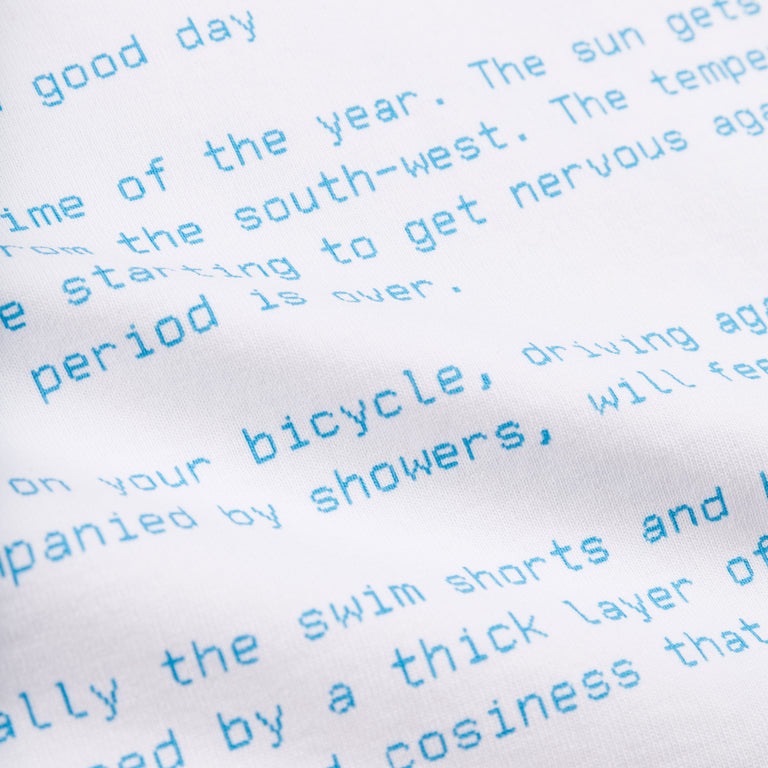 good day
ime of the year. The sun gets
from the south-west. The tempe
e starting to get nervous aga
period is over.
on your bicycle, driving aga
panied by showers, will fee
ally the swim shorts and
ed by a thick layer of
cosiness that